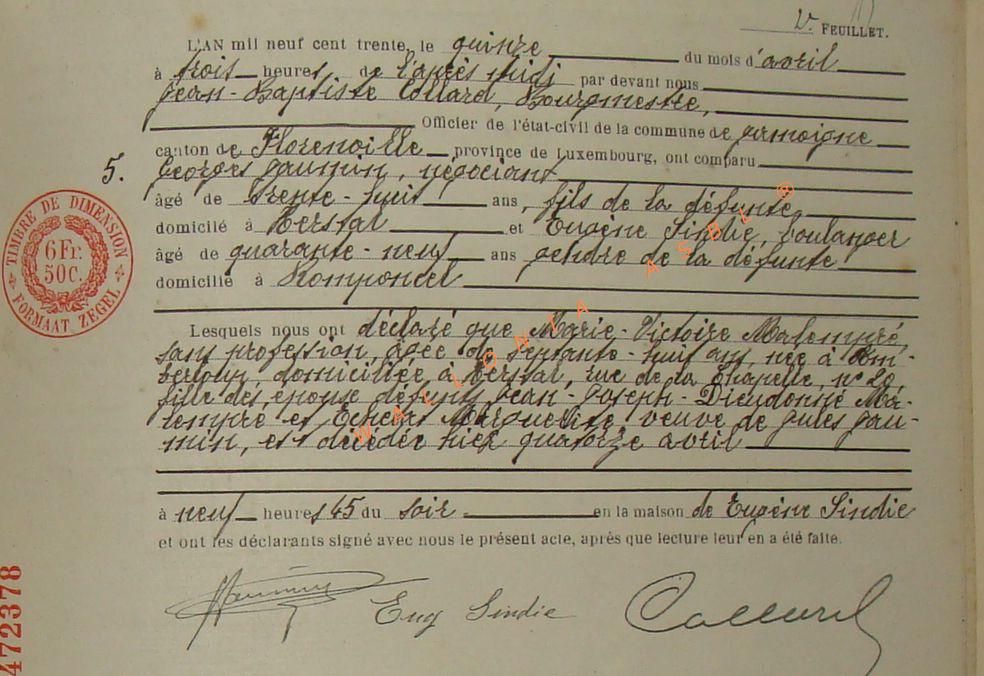 2e FEUILLET.
L'AN mil neuf cent trente, le quinze du mois d'avril
à trois heures de l'après midi par devant nous
Jean-Baptiste Collard, Bourgmestre,
Officier de l'état-civil de la commune de Jamoigne
canton de Florenville province de Luxembourg, ont comparu
5.
Georges Gaumin, négociant
âgé de trente-huit ans, fils de la défunte,
domicilié à Herstal et Eugène Sindic, boulanger
âgé de quarante-neuf ans gendre de la défunte
domicilié à Romponcel
Lesquels nous ont déclaré que Marie-Victoire Malempré,
sans profession, âgée de septante-huit ans, née à
domiciliée à Herstal, rue de la Chapelle, n° 20,
fille des époux défunts Jean-Joseph-Dieudonné Ma-
lempré et Marguerite veuve de Jules Gau-
min, est décédée hier quatorze avril
à neuf heures 45 du soir en la maison de Eugène Sindic
et ont les déclarants signé avec nous le présent acte, après que lecture leur en a été faite.
Gaumin
Eug Sindic
Collard
TIMBRE DE DIMENSION
6 Fr.
50C.
FORMAAT ZEGEL
472378
WALLONIA ASBL ®